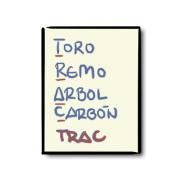 TORO
REMO
ARBOL
CARBÓN
TRAC